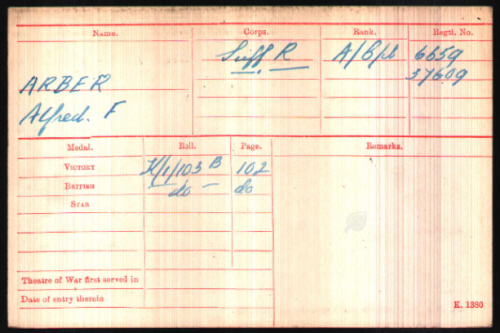 Name. Corps. Rank. Regtl. No.
Suff R A/Cpl 6659
37609
ARBER
Alfred. F
Medal. Roll. Page. Remarks.
VICTORY K/1/103 B 102
BRITISH — do — do
STAR
Theatre of War first served in
Date of entry therein
K. 1380